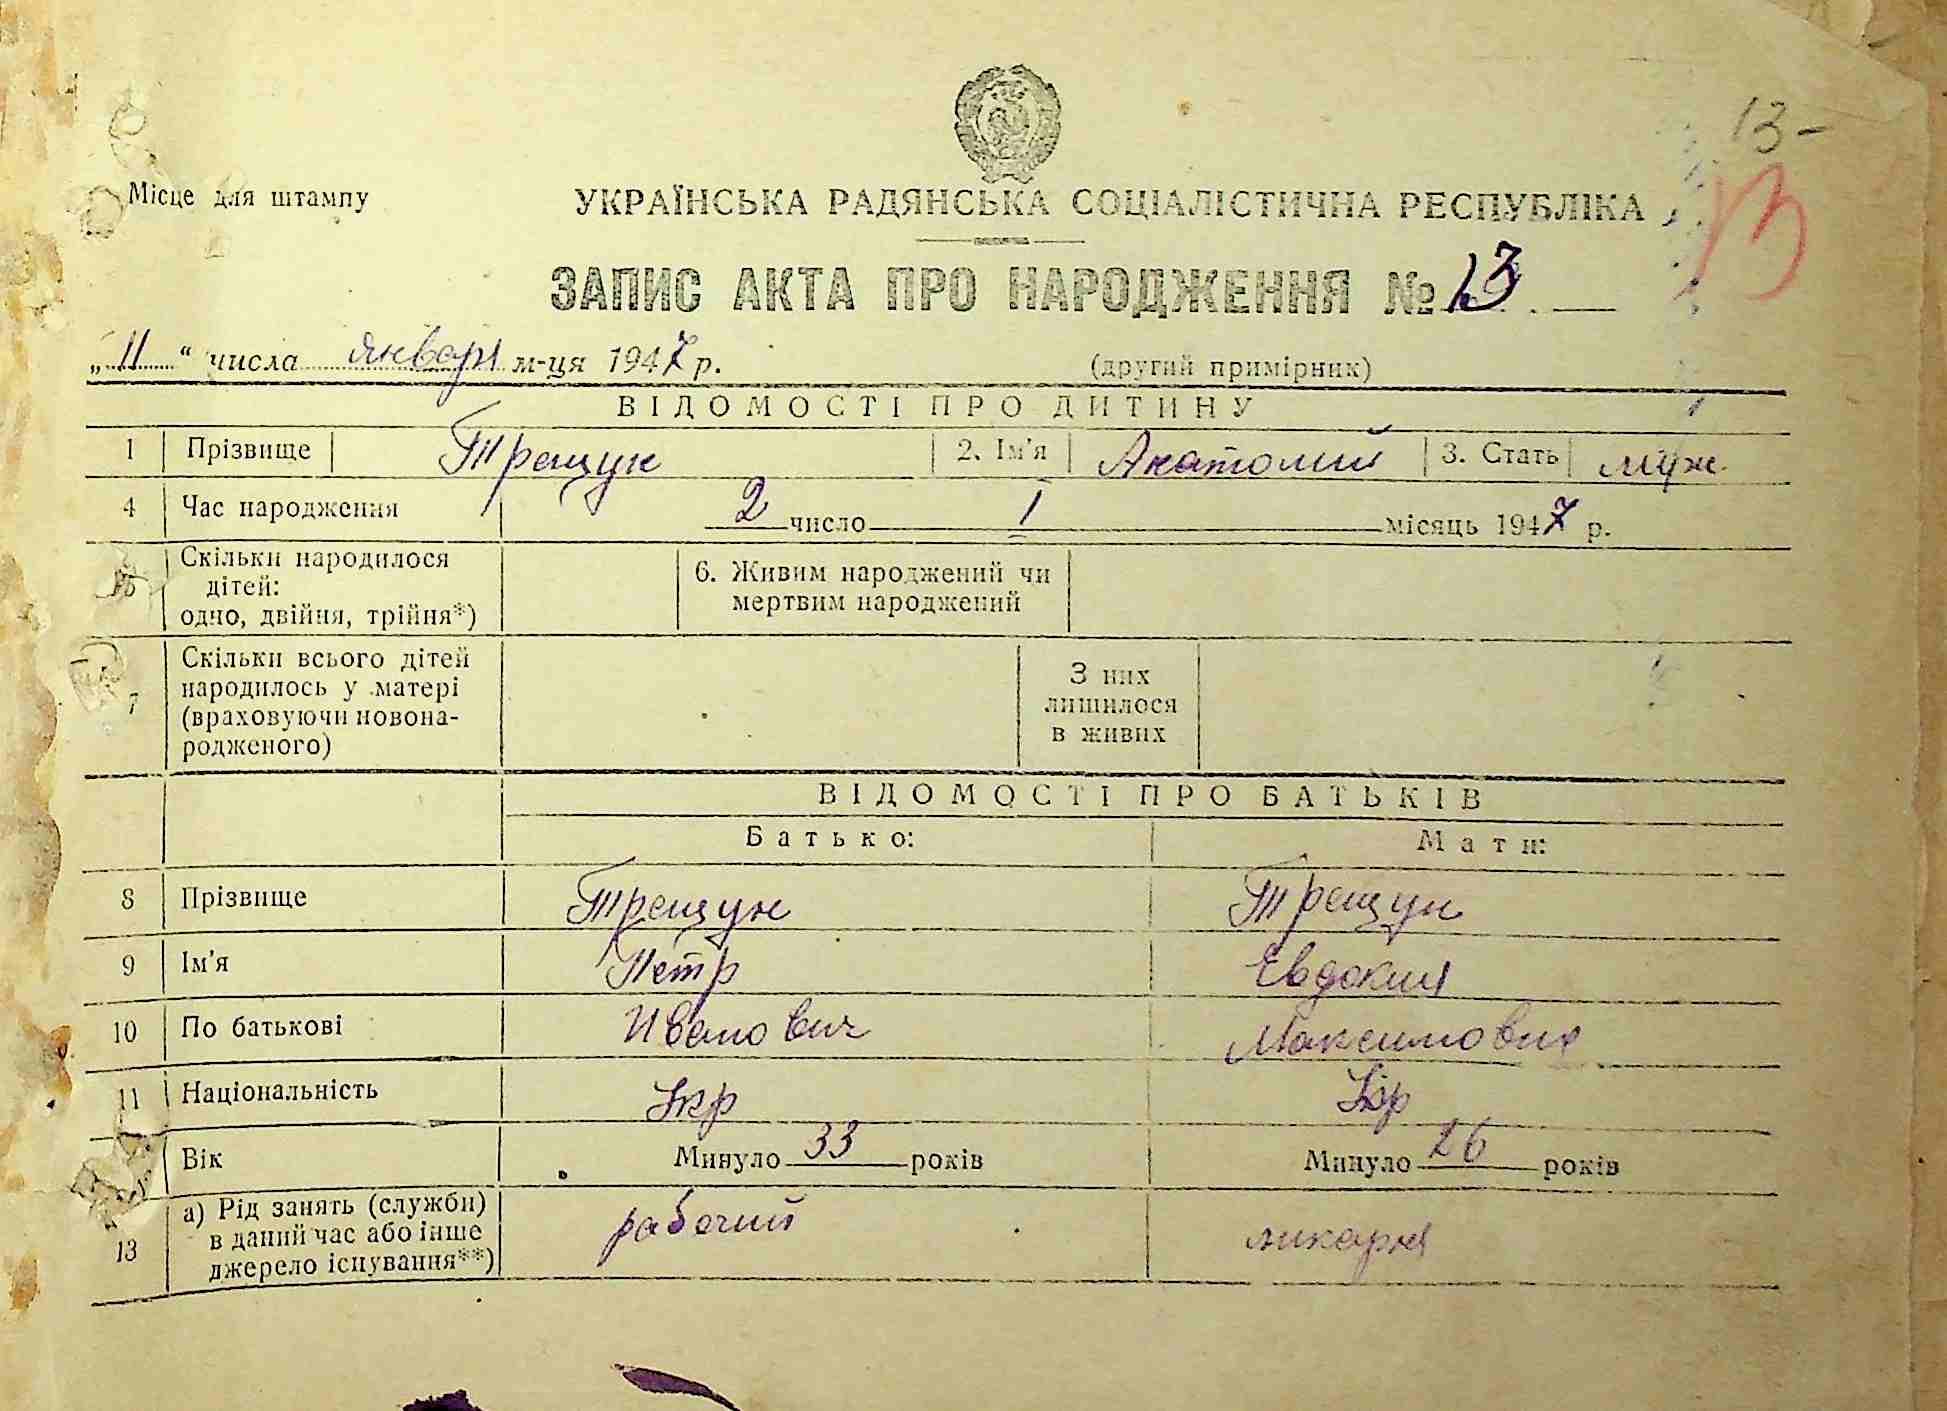 13-
13
Місце для штампу
УКРАЇНСЬКА РАДЯНСЬКА СОЦІАЛІСТИЧНА РЕСПУБЛІКА
ЗАПИС АКТА ПРО НАРОДЖЕННЯ № 13
„11“ числа января м-ця 1947 р. (другий примірник)
ВІДОМОСТІ ПРО ДИТИНУ
1 Прізвище Трещук 2. Ім'я Анатолий 3. Стать муж.
4 Час народження 2 число 1 місяць 1947 р.
5 Скільки народилося дітей: одно, двійня, трійня*) 6. Живим народжений чи мертвим народжений
7 Скільки всього дітей народилось у матері (враховуючи новонародженого) З них лишилося в живих
ВІДОМОСТІ ПРО БАТЬКІВ
Батько: Мати:
8 Прізвище Трещук Трещук
9 Ім'я Петр Евдокия
10 По батькові Иванович Максимовна
11 Національність Укр Укр
Вік Минуло 33 років Минуло 26 років
13 а) Рід занять (служби) в даний час або інше джерело існування**) рабочий